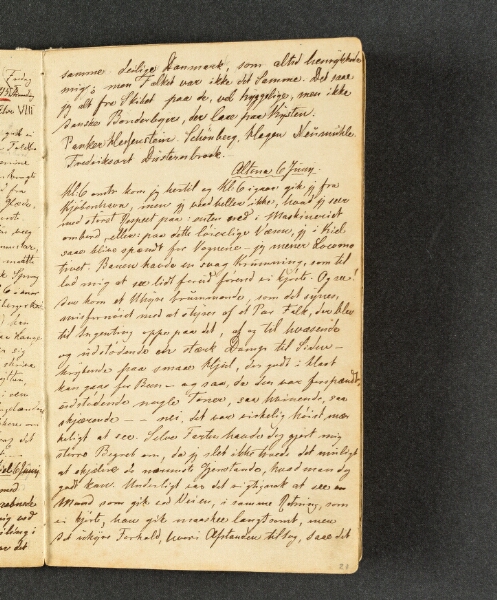 samme deilige Danmark, som altid henrykkede
mig, men Folket var ikke det Samme. Det saae
jeg alt fra Skibet paa de, vel hyggelige, men ikke
danske Bønderbyer, der laae paa Kysten.
Panker Hessenstein. Schönberg, Hagen Neumühle.
Frederiksort Düsternbrook.
Altona 6 Juny.
Kl 6 omtr kom jeg hertil og Kl 6 igaar gik jeg fra
Kjøbenhavn, men jeg veed heller ikke, hvad jeg seer
med størst Respect paa: enten ned i Maskineriet
ombord, eller paa dette løierlige Væsen, jeg i Kiel
saae blive spændt for Vognene – jeg mener Locomo
tivet. Banen havde en svag Krumning, som til
lod mig at see lidt forud førend vi kjørte. Og see!
Der kom et Uhyre brummende, som det syntes,
misfornøiet med at styres af et Par Folk, der blev
til Ingenting oppe paa det, af og til hvæsende
og udstødende en stærk Damp til Siden –
krybende paa smaa Hjul, der godt i Hast
kan gaae for Been – og saa, da den var forspændt,
udstødende nogle Toner, saa hvinende, saa
skjærende – – nei, det var virkelig høist mær
keligt at see. Selve Farten havde jeg gjort mig
større Begreb om, da jeg slet ikke troede det muligt
at skjelne de nærmeste Gjenstande, hvad man dog
godt kan. Underligt var det rigtignok at see en
Mand som gik ved Veien, i samme Retning, som
vi kjørte, han gik maaskee langsomt, men
det uhyre Forhold, hvori Afstanden tiltog, saae det
21